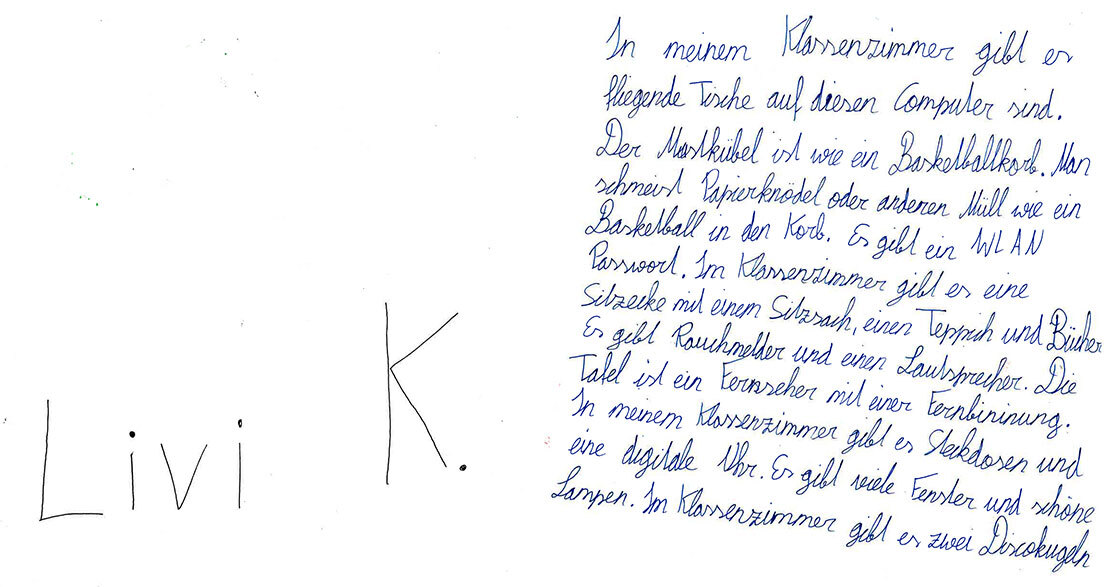 Livi K.
In meinem Klassenzimmer gibt es
fliegende Tische auf diesen Computer sind.
Der Mistkübel ist wie ein Basketballkorb. Man
schmeist Papierknödel oder anderen Müll wie ein
Basketball in den Korb. Es gibt ein WLAN
Passwort. Im Klassenzimmer gibt es eine
Sitzecke mit einem Sitzsach, einen Teppich und Bücher
Es gibt Rauchmelder und einen Lautsprecher. Die
Tafel ist ein Fernseher mit einer Fernbininung.
In meinem Klassenzimmer gibt es Steckdosen und
eine digitale Uhr. Es gibt viele Fenster und schöne
Lampen. Im Klassenzimmer gibt es zwei Discokugeln